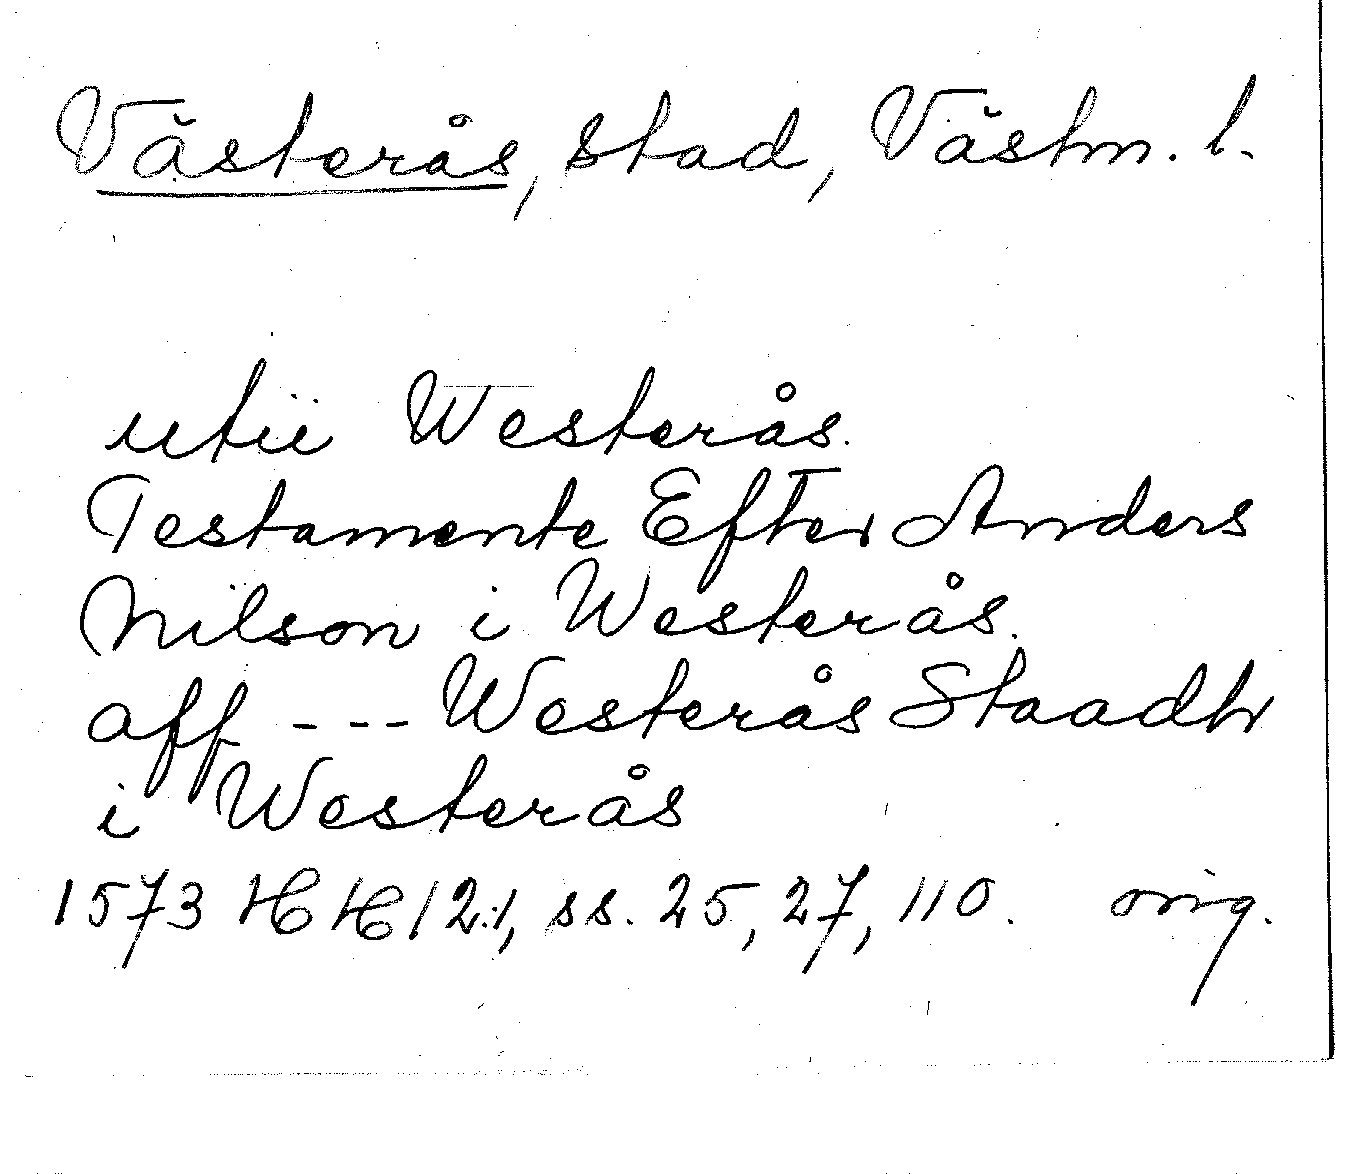 Västerås, stad, Västm. l.
utii Westerås.
Testamente Efter Anders
Nilson i Westerås.
aff --- Westerås Staadh
i Westerås
1573 HH 12:1, ss. 25, 27, 110. orig.